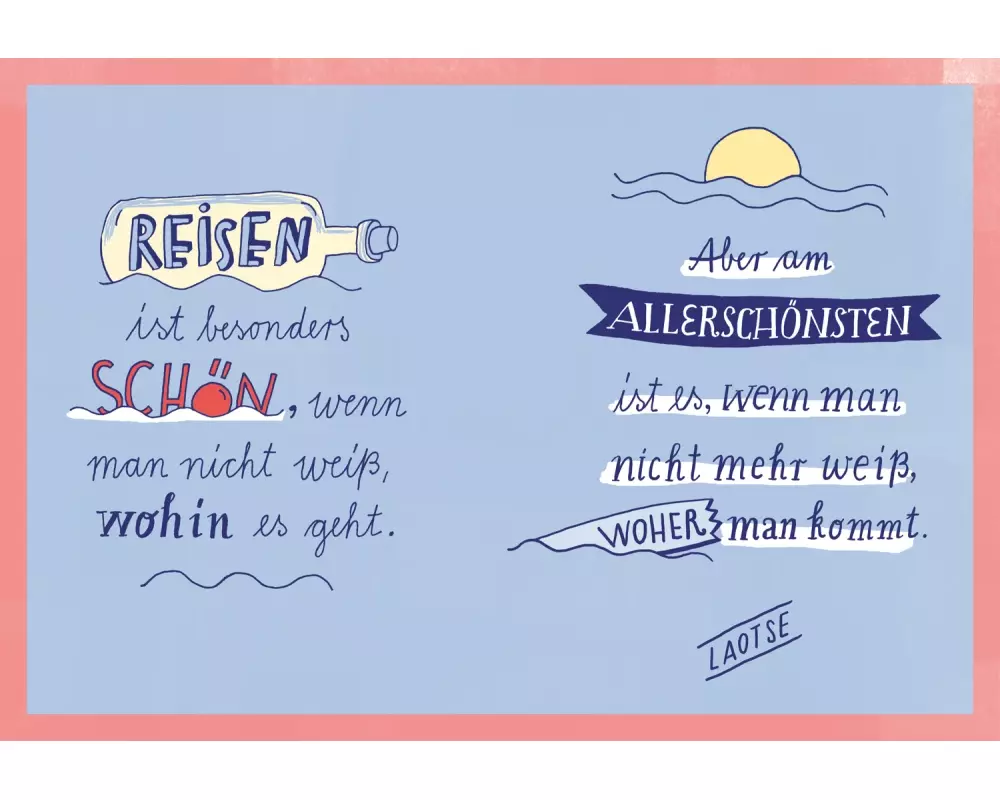 REISEN
ist besonders
SCHÖN, wenn
man nicht weiß,
wohin es geht.
Aber am
ALLERSCHÖNSTEN
ist es, wenn man
nicht mehr weiß,
WOHER man kommt.
LAOTSE